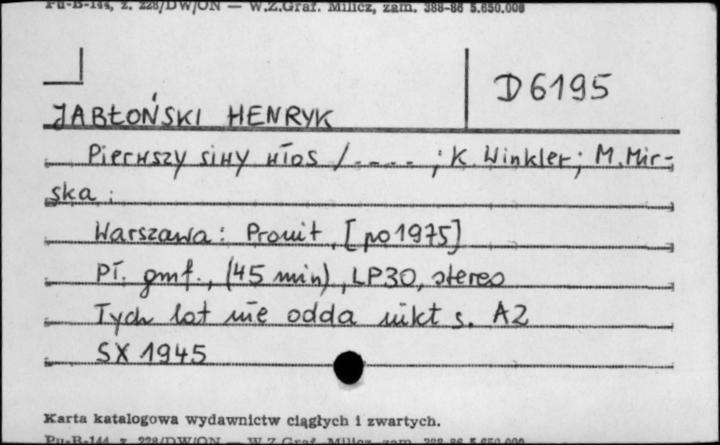 Pu-B-144, z. 228/DW/ON — W.Z.Graf. Milicz, zam. 388-86 5.650.000
D 6195
JABŁOŃSKI HENRYK
Pierwszy siwy włos / - - - - ; K. Winkler; M. Mir-
ska.
Warszawa: Pronit, [po 1975]
Pł. gmf., (45 min), LP30, stereo
Tych lat nie odda nikt s. A2
SX 1945
Karta katalogowa wydawnictw ciągłych i zwartych.
Pu-B-144, z. 228/DW/ON — W.Z.Graf. Milicz, zam. 388-86 5.650.000